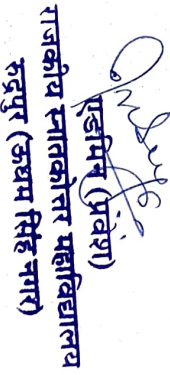 एडमिन (प्रवेश)
राजकीय स्नातकोत्तर महाविद्यालय
रुद्रपुर (ऊधम सिंह नगर)